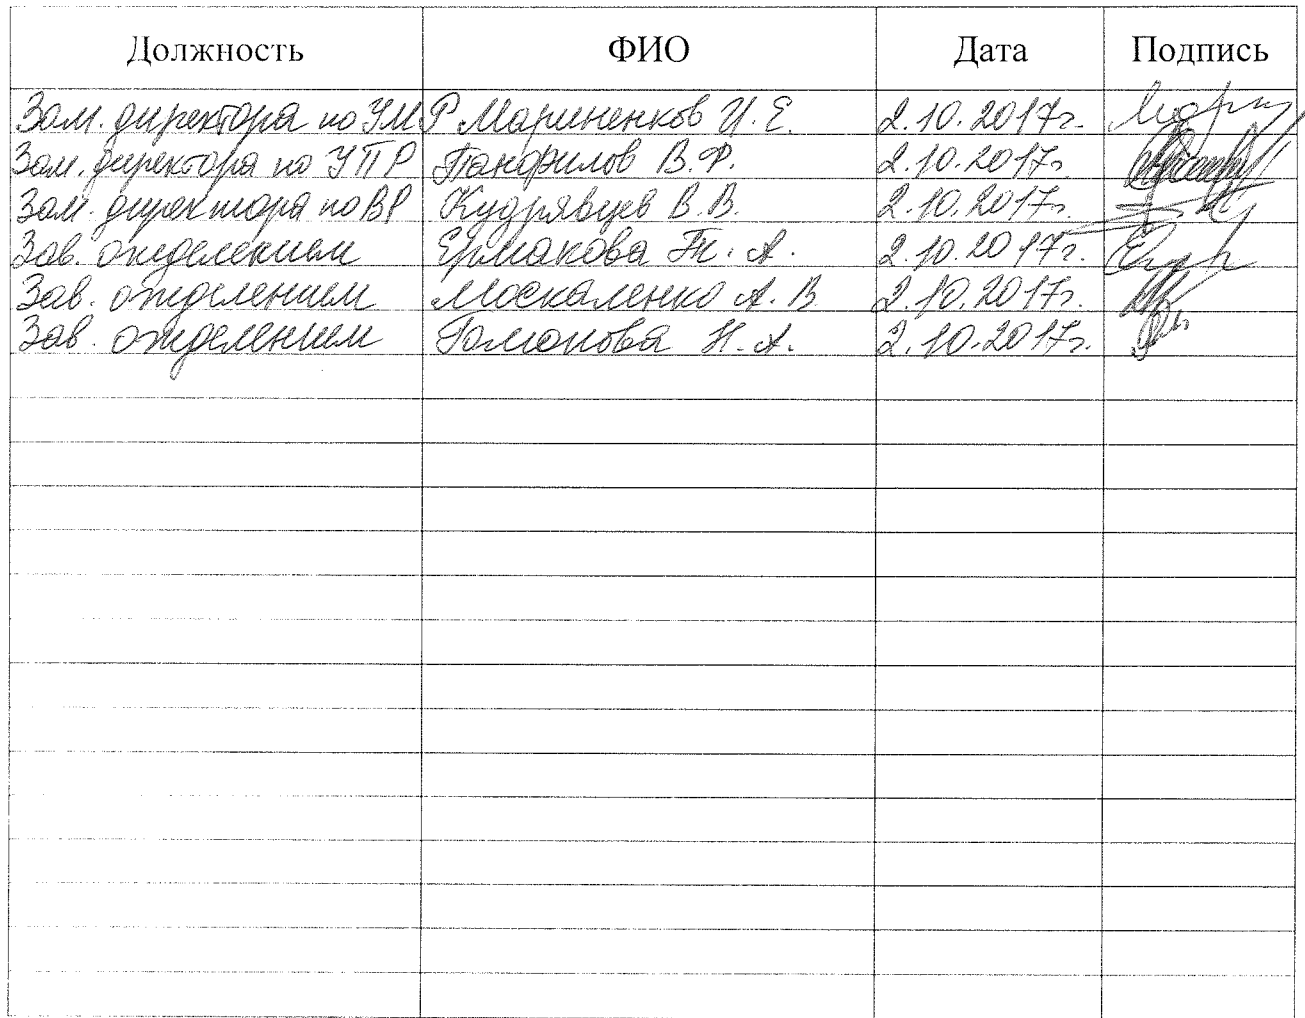 Должность ФИО Дата Подпись
Зам. директора по УМР Мариненков И. Е. 2.10.2017г.
Зам. директора по УПР Панфилов В. Ф. 2.10.2017г.
Зам. директора по ВР Кудрявцев В. В. 2.10.2017г.
Зав. отделением Ермакова Т. А. 2.10.2017г.
Зав. отделением Москаленко А. В. 2.10.2017г.
Зав. отделением Гомонова Н. А. 2.10.2017г.